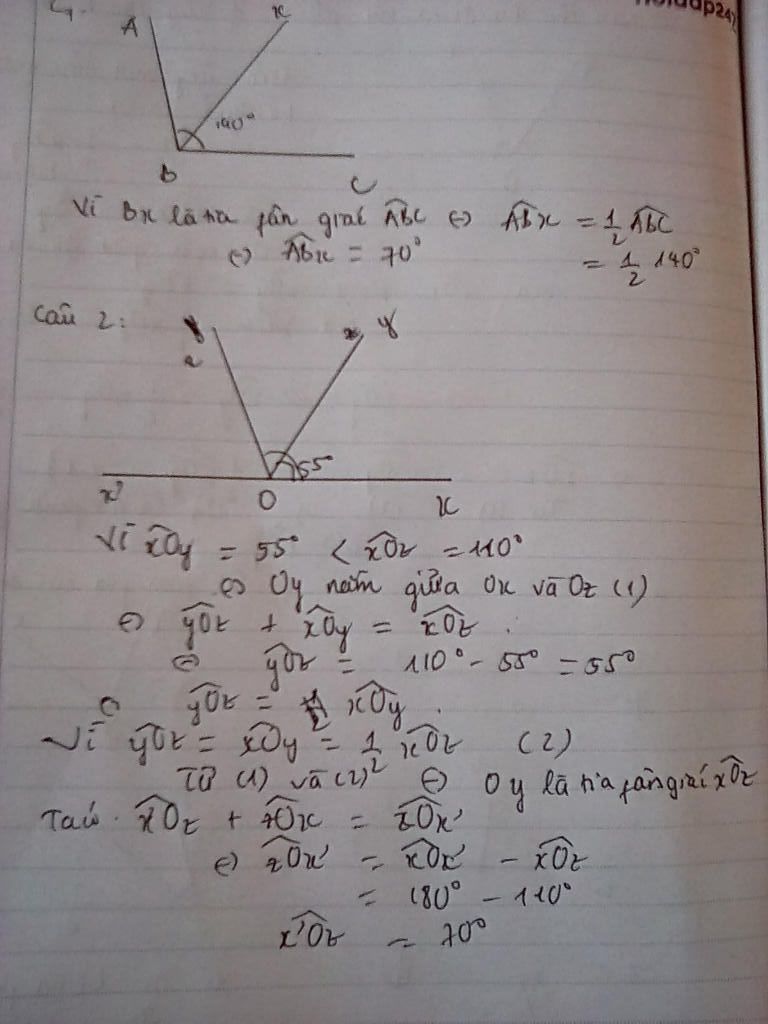 A x
140°
B C
Vì Bx là tia fân giác ABC ⇔ ABx = 1/2 ABC
⇔ ABx = 70° = 1/2 140°
Câu 2:
z y
55°
x' O x
Vì xOy = 55° < xOz = 110°
⇔ Oy nằm giữa Ox và Oz (1)
⇔ yOz + xOy = xOz.
⇔ yOz = 110° - 55° = 55°
yOz = xOy.
Vì yOz = xOy = 1/2 xOz (2)
Từ (1) và (2) ⇔ Oy là tia fân giác xOz
Ta có xOz + = xOx'
⇔ zOx' = xOx' - xOz
= 180° - 110°
x'Oz = 70°